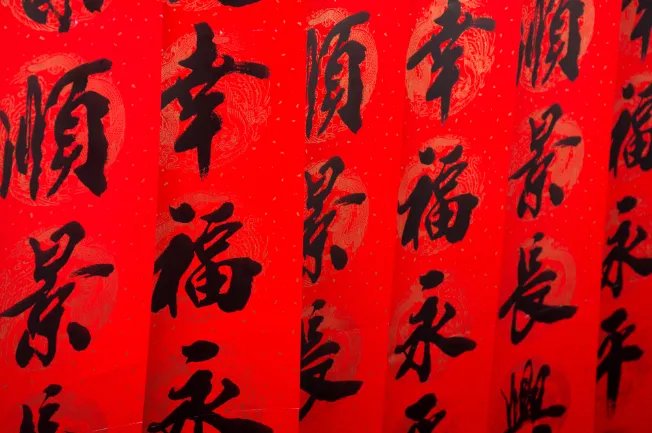 福永平
順景長興
幸福永
順景長
幸福永
順景長